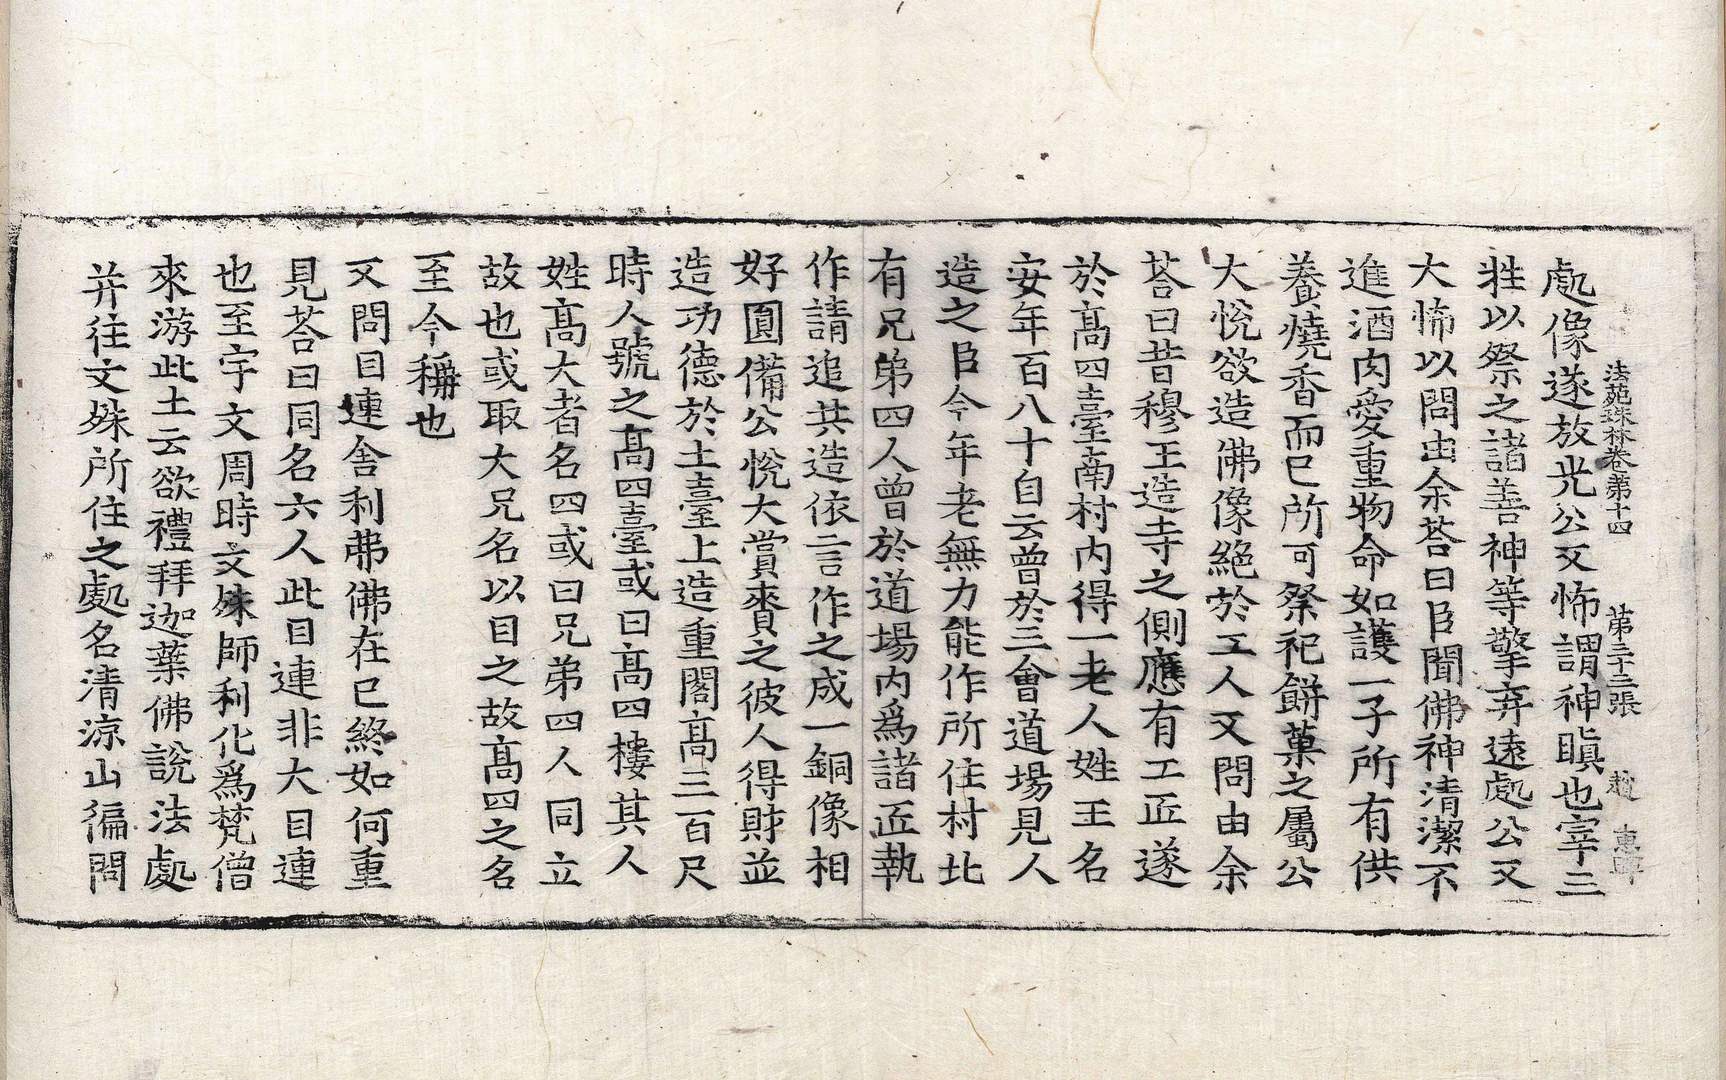 法苑珠林卷第十四 第三十三張 趙
處像遂放光公又怖謂神瞋也宰三
牲以祭之諸善神等擎弃遠處公又
大怖以問由余荅曰臣聞佛神清潔不
進酒肉愛重物命如護一子所有供
養燒香而已所可祭祀餅菓之屬公
大悅欲造佛像絕於工人又問由余
荅曰昔穆王造寺之側應有工匠遂
於髙四臺南村内得一老人姓王名
安年百八十自云曾於三會道場見人
造之臣今年老無力能作所住村北
有兄弟四人曾於道場内爲諸匠執
作請追共造依言作之成一銅像相
好圓備公悅大賞賚之彼人得財並
造功德於土臺上造重閣髙三百尺
時人號之髙四臺或曰髙四樓其人
姓髙大者名四或曰兄弟四人同立
故也或取大兄名以目之故髙四之名
至今稱也
又問目連舍利弗佛在已終如何重
見荅曰同名六人此目連非大目連
也至宇文周時文殊師利化爲梵僧
來游此土云欲禮拜迦葉佛說法處
并往文殊所住之處名清涼山徧問